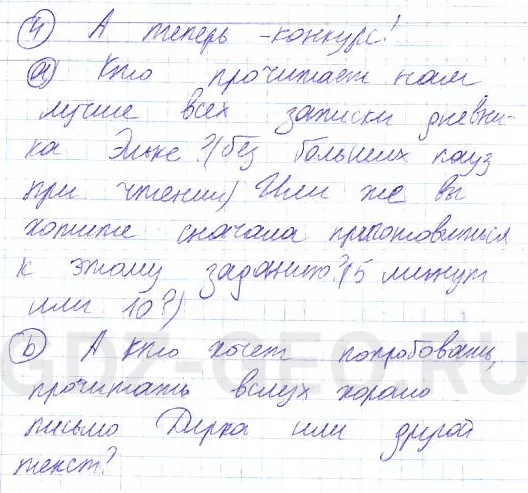 4) А теперь - конкурс!
a) Кто прочитает нам
лучше всех записки дневни-
ка Эльке? (без больших пауз
при чтении) Или же вы
хотите сначала приготовиться
к этому заданию? (5 минут
или 10?)
b) А кто хочет попробовать,
прочитать вслух хорошо
письмо Дирка или другой
текст?
GDZ-GEO.RU